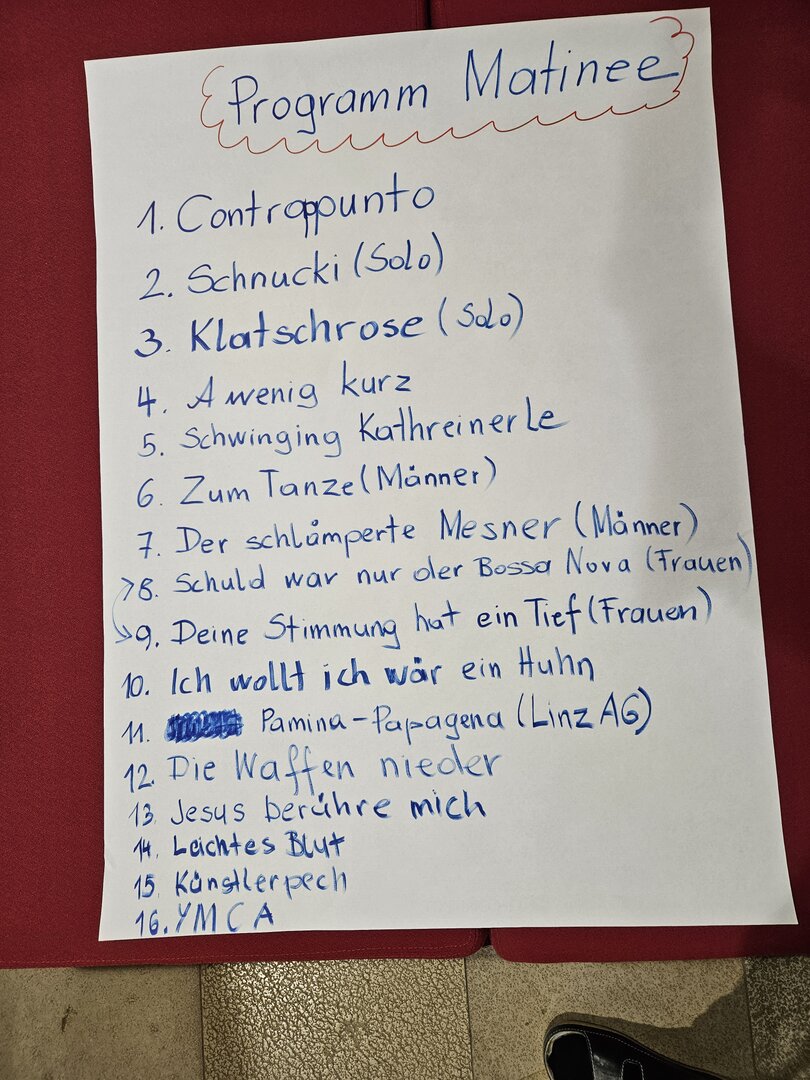 Programm Matinee
1. Contrappunto
2. Schnucki (Solo)
3. Klatschrose (Solo)
4. A wenig kurz
5. Schwinging Kathreinerle
6. Zum Tanze (Männer)
7. Der schlamperte Mesner (Männer)
8. Schuld war nur der Bossa Nova (Frauen)
9. Deine Stimmung hat ein Tief (Frauen)
10. Ich wollt ich wär ein Huhn
11. Pamina-Papagena (Linz AG)
12. Die Waffen nieder
13. Jesus berühre mich
14. Leichtes Blut
15. Künstlerpech
16. YMCA